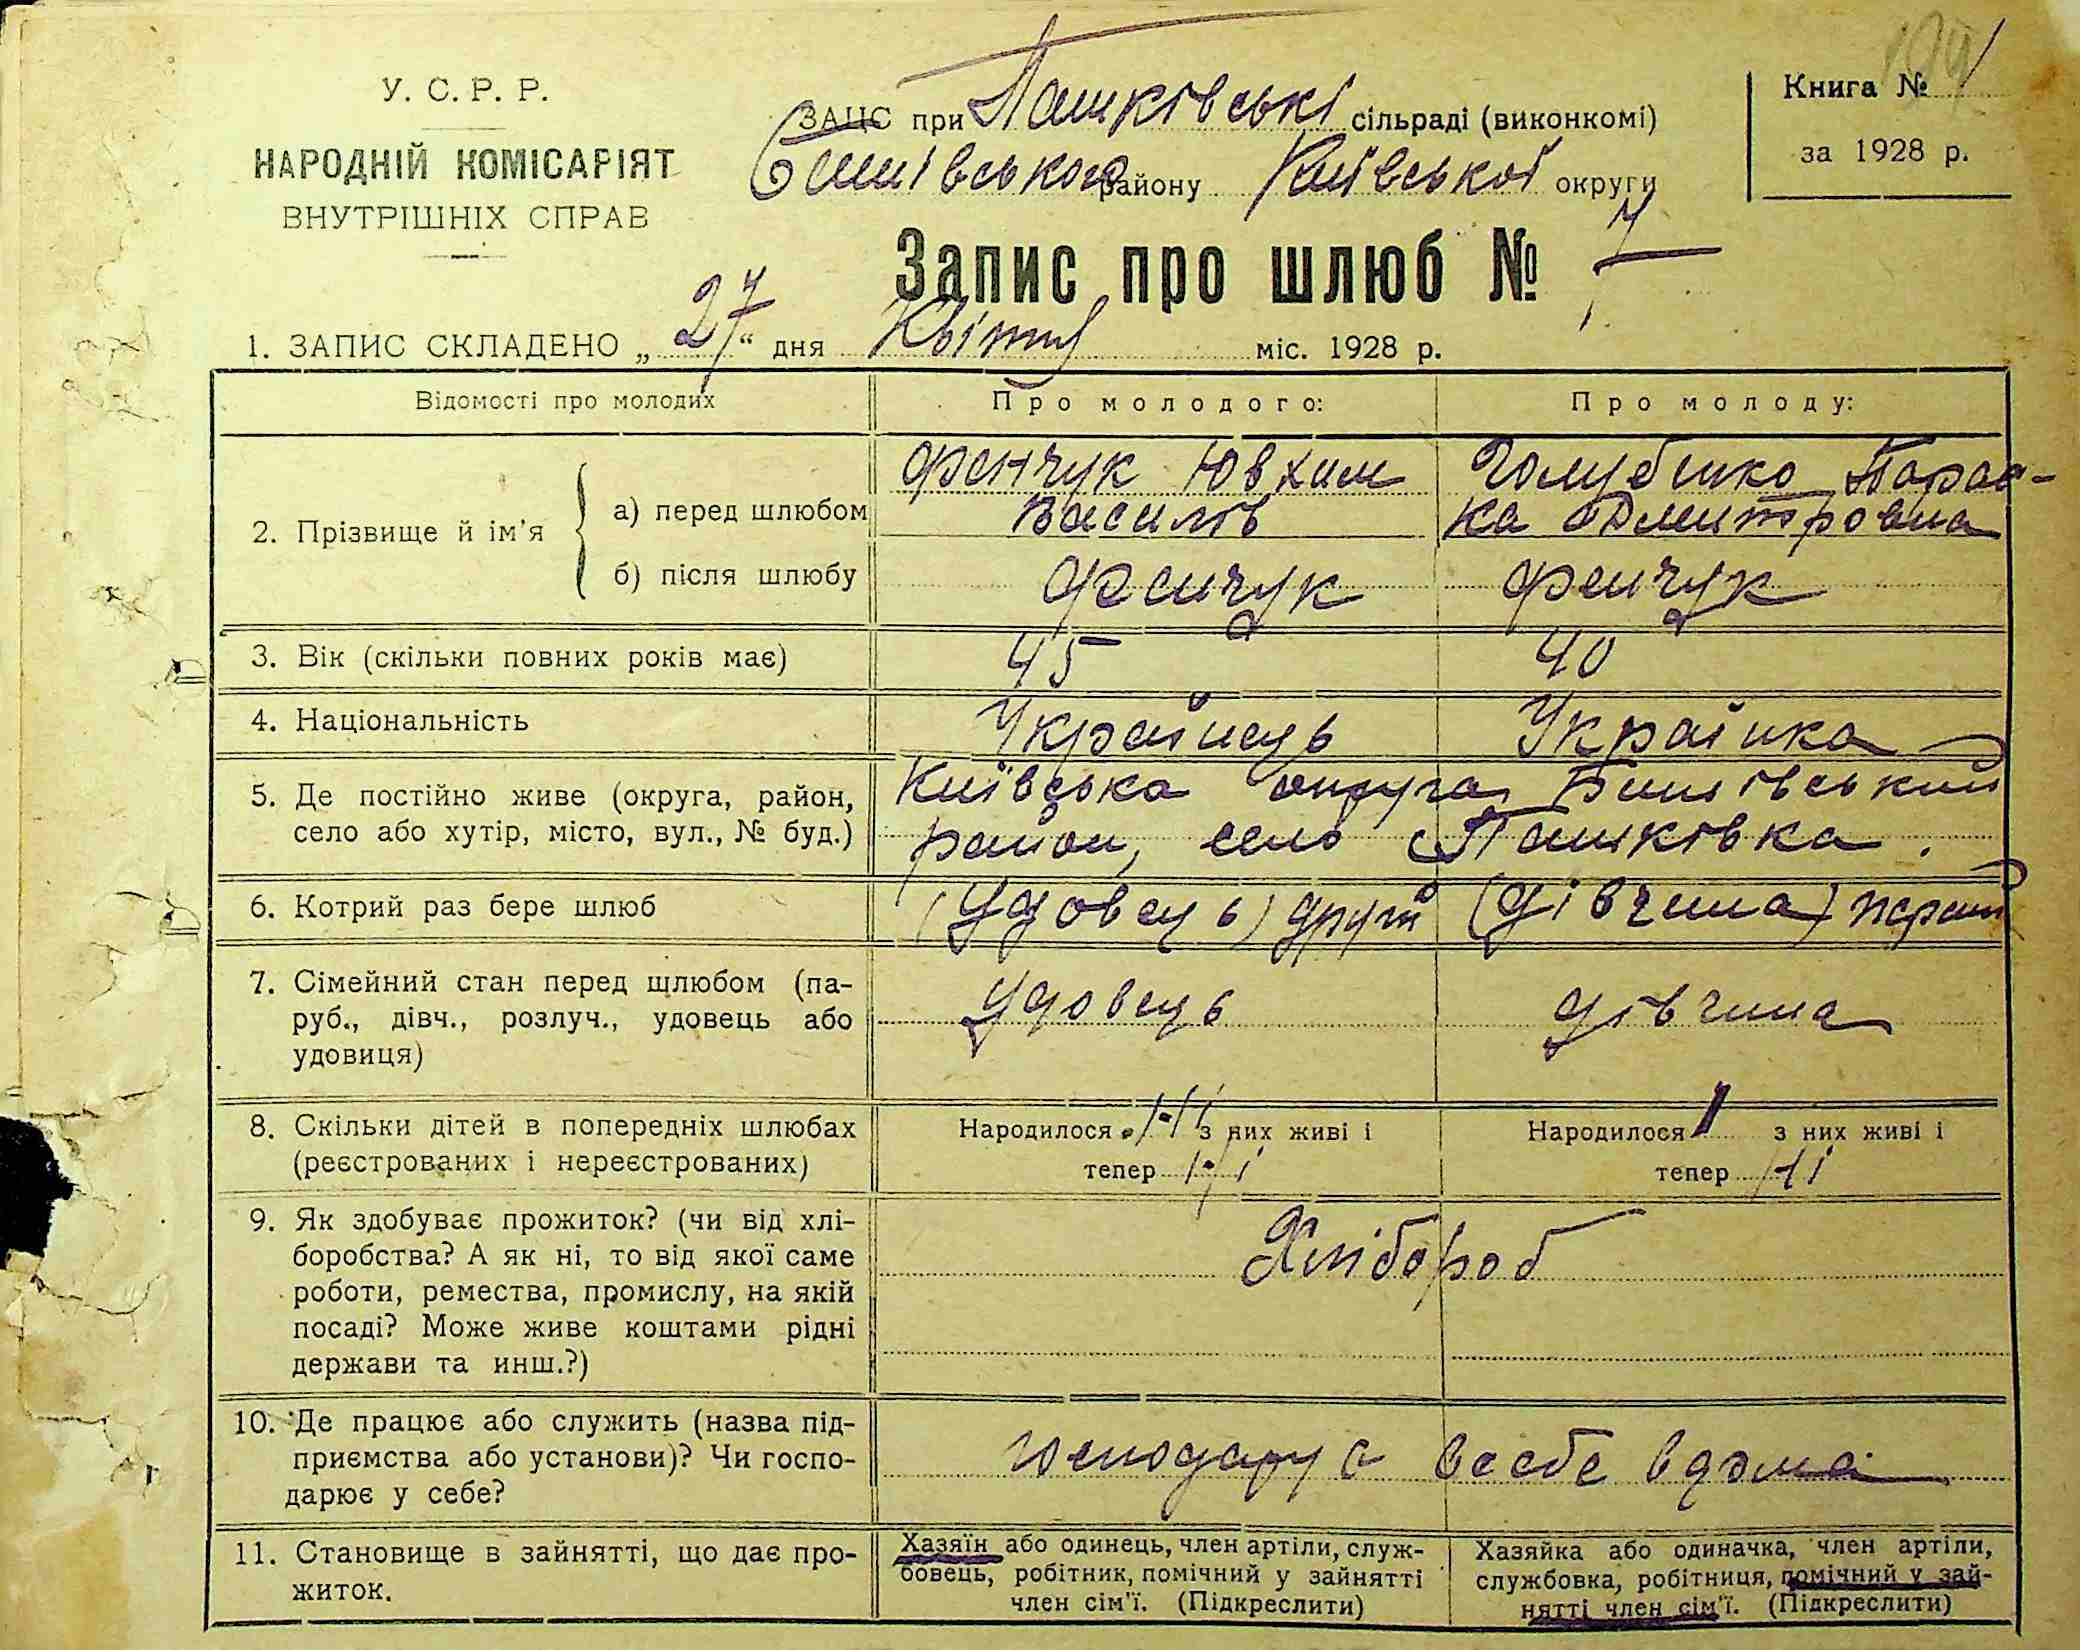 У. С. Р. Р.
НАРОДНІЙ КОМІСАРІЯТ
ВНУТРІШНІХ СПРАВ
ЗАЦС при Пашківські сільраді (виконкомі)
Бишівського району Київської округи
Книга № 1
за 1928 р.
Запис про шлюб № 7
1. ЗАПИС СКЛАДЕНО „ 27 “ дня Квітня міс. 1928 р.
Відомості про молодих
Про молодого:
Про молоду:
2. Прізвище й ім’я
а) перед шлюбом
Фенчук Ювхим
Василів
Голубенко Парас-
ка Дмитровна
б) після шлюбу
Фенчук
Фенчук
3. Вік (скільки повних років має)
45
40
4. Національність
Українець
Українка
5. Де постійно живе (округа, район,
село або хутір, місто, вул., № буд.)
Київська округа Бишівський
район, село Пашківка.
6. Котрий раз бере шлюб
(Удовець) другий
(дівчина) перший
7. Сімейний стан перед шлюбом (па-
руб., дівч., розлуч., удовець або
удовиця)
Удовець
дівчина
8. Скільки дітей в попередніх шлюбах
(реєстрованих і нереєстрованих)
Народилося з них живі і
тепер
Народилося з них живі і
тепер
9. Як здобуває прожиток? (чи від хлі-
боробства? А як ні, то від якої саме
роботи, ремества, промислу, на якій
посаді? Може живе коштами рідні
держави та инш.?)
Хлібороб
10. Де працює або служить (назва під-
приємства або установи)? Чи госпо-
дарює у себе?
господарує в себе вдома
11. Становище в зайнятті, що дає про-
житок.
Хазяїн або одинець, член артіли, служ-
бовець, робітник, помічний у зайнятті
член сім’ї. (Підкреслити)
Хазяйка або одиначка, член артіли,
службовка, робітниця, помічний у зай-
нятті член сім’ї. (Підкреслити)